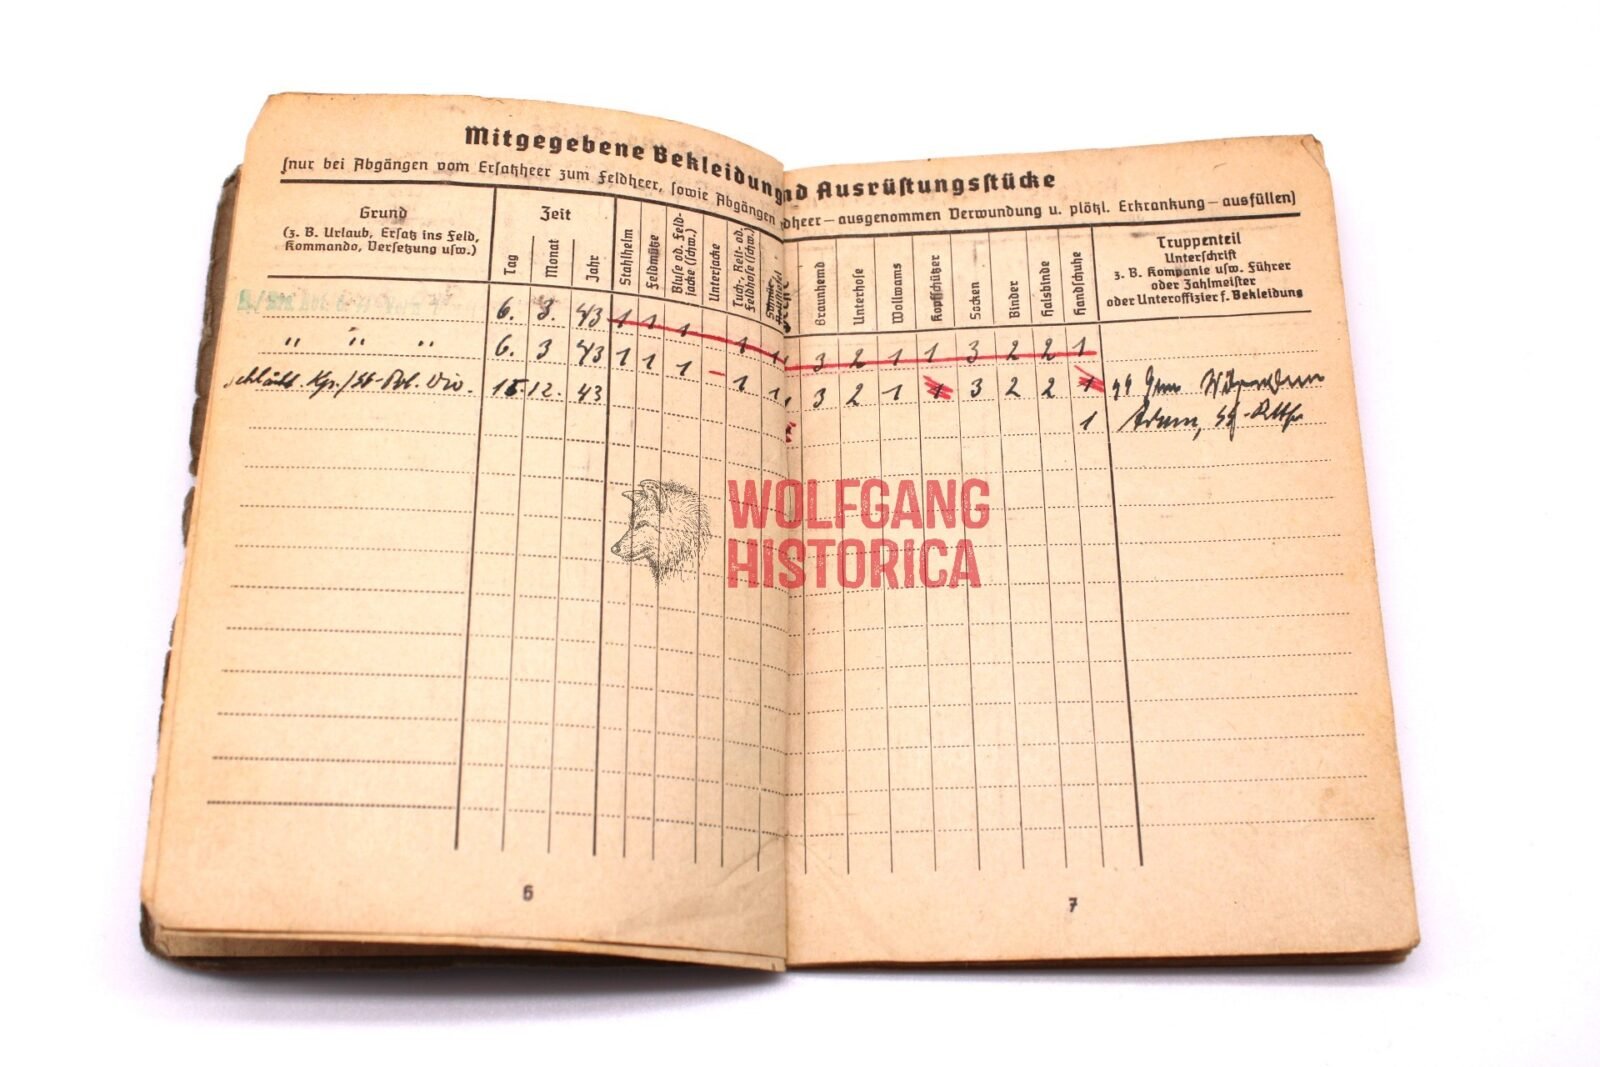 Mitgegebene Bekleidung nd Ausrüstungsstücke
(nur bei Abgängen vom Ersatzheer zum Feldheer, sowie Abgängen dheer — ausgenommen Verwundung u. plötzl. Erkrankung — ausfüllen)
Grund
(z. B. Urlaub, Ersatz ins Feld,
Kommando, Versetzung usw.)
Zeit
Tag
Monat
Jahr
Stahlhelm
Feldmütze
Bluse od. Feld-
jacke (schw.)
Unterjacke
Tuch-, Reit- od.
Feldhose (schw.)
Braunhemd
Unterhose
Wollwams
Kopfschützer
Socken
Binder
Halsbinde
Handschuhe
Truppenteil
Unterschrift
z. B. Kompanie usw. Führer
oder Zahlmeister
oder Unteroffizier f. Bekleidung
6. 3. 43 1 1 1 1 1 3 2 1 1 3 2 2 1
" " " 6. 3 43 1 1 1 – 1 1 3 2 1 1 3 2 2 1
Kp./ Div. 15. 12. 43 1
WOLFGANG
HISTORICA
6
7